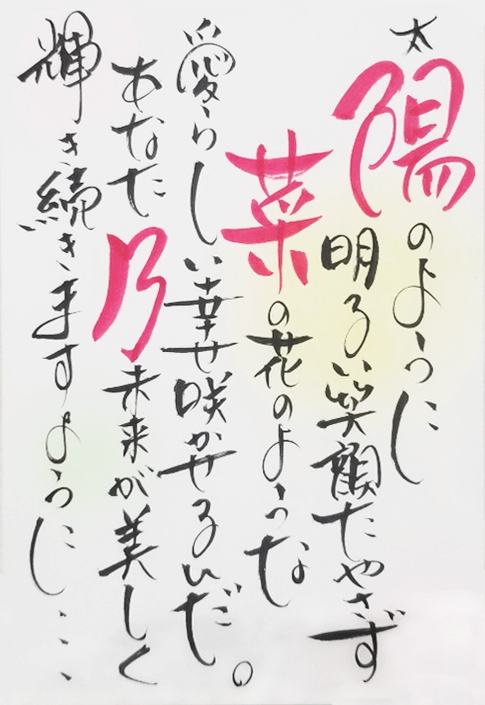 太陽のように
明るい笑顔たやさず
菜の花のような
愛らしい幸せ咲かせるんだ。
あなた乃未来が美しく
輝き続きますように…